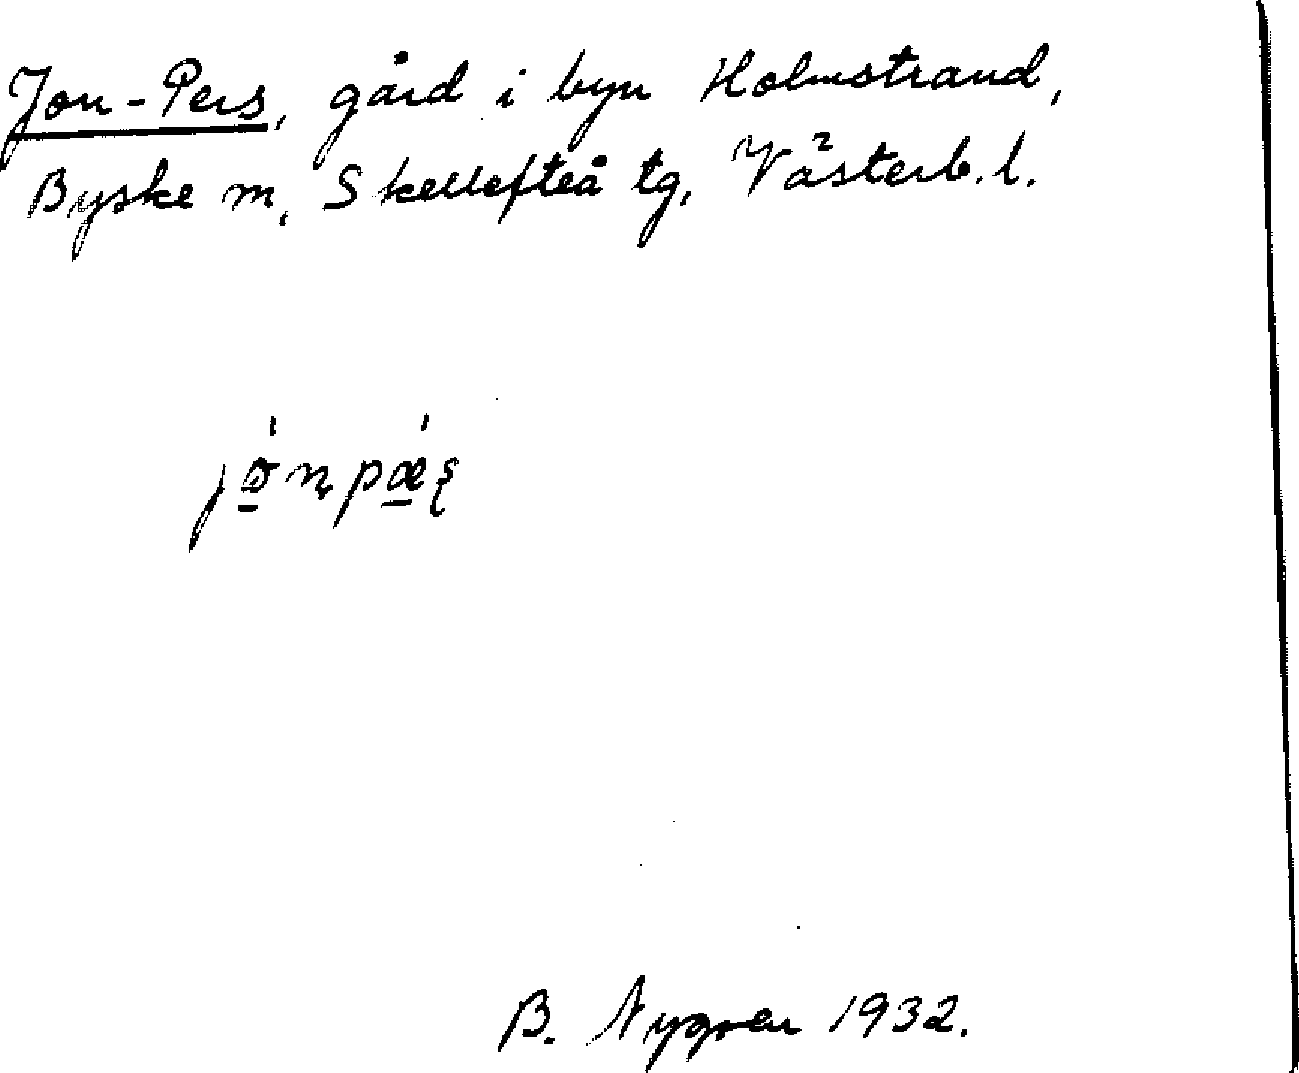 Jon-Pers, gård i byn Holmstrand,
Byske sn, Skellefteå tg, Västerb. l.
B. Nygren 1932.